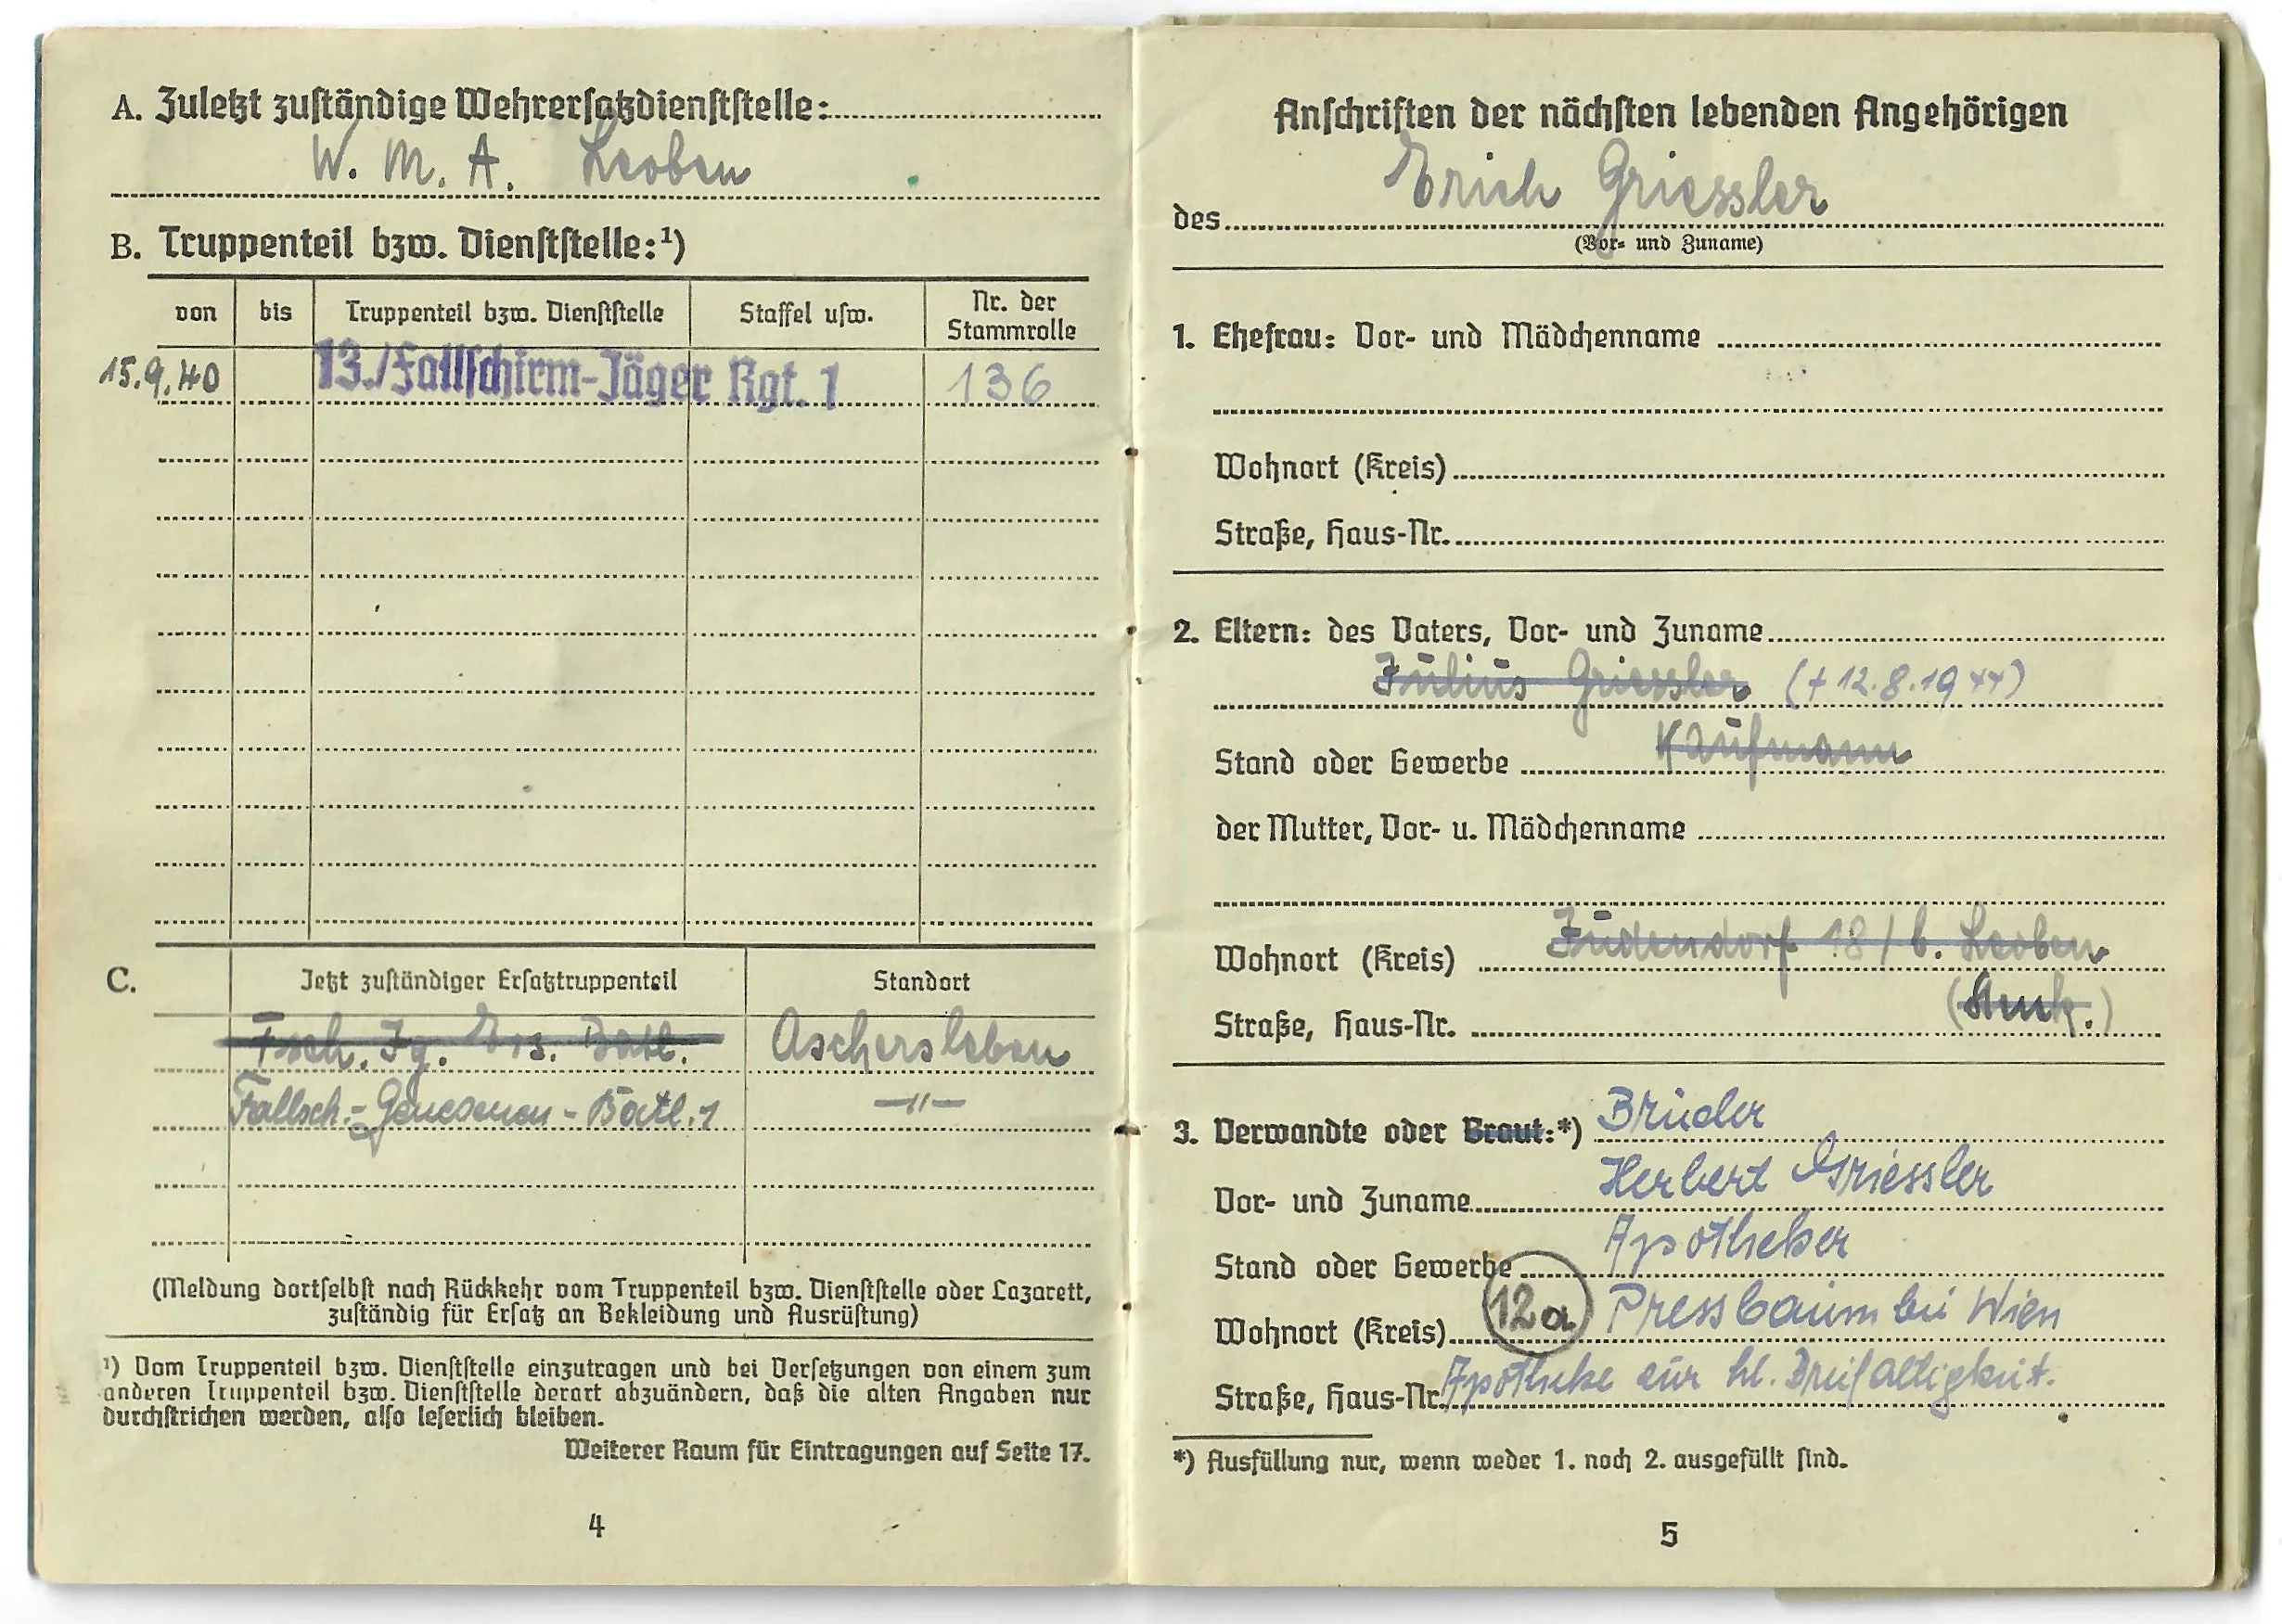 A. Zuletzt zuständige Wehrersatzdienststelle:
W. M. A. Leoben
B. Truppenteil bzw. Dienststelle:¹)
von bis Truppenteil bzw. Dienststelle Staffel usw. Nr. der Stammrolle
15.9.40 13./Fallschirm-Jäger Rgt. 1 136
C. Jetzt zuständiger Ersatztruppenteil Standort
Fsch. Jg. Ers. Batl. Aschersleben
Fallsch.-Genesenen-Batl. 1 —〃—
(Meldung dortselbst nach Rückkehr vom Truppenteil bzw. Dienststelle oder Lazarett,
zuständig für Ersatz an Bekleidung und Ausrüstung)
¹) Vom Truppenteil bzw. Dienststelle einzutragen und bei Versetzungen von einem zum
anderen Truppenteil bzw. Dienststelle derart abzuändern, daß die alten Angaben nur
durchstrichen werden, also leserlich bleiben.
Weiterer Raum für Eintragungen auf Seite 17.
4
Anschriften der nächsten lebenden Angehörigen
des Erich Griessler
(Vor- und Zuname)
1. Ehefrau: Vor- und Mädchenname
Wohnort (Kreis)
Straße, Haus-Nr.
2. Eltern: des Vaters, Vor- und Zuname
Julius Griessler (+ 12.8.1944)
Stand oder Gewerbe Kaufmann
der Mutter, Vor- u. Mädchenname
Wohnort (Kreis) Judendorf 18/b. Leoben
Straße, Haus-Nr. (Stmk.)
3. Verwandte oder Braut:*) Bruder
Vor- und Zuname Herbert Griessler
Stand oder Gewerbe Apotheker
Wohnort (Kreis) 12a Pressbaum bei Wien
Straße, Haus-Nr. Apotheke zur hl. Dreifaltigkeit.
*) Ausfüllung nur, wenn weder 1. noch 2. ausgefüllt sind.
5